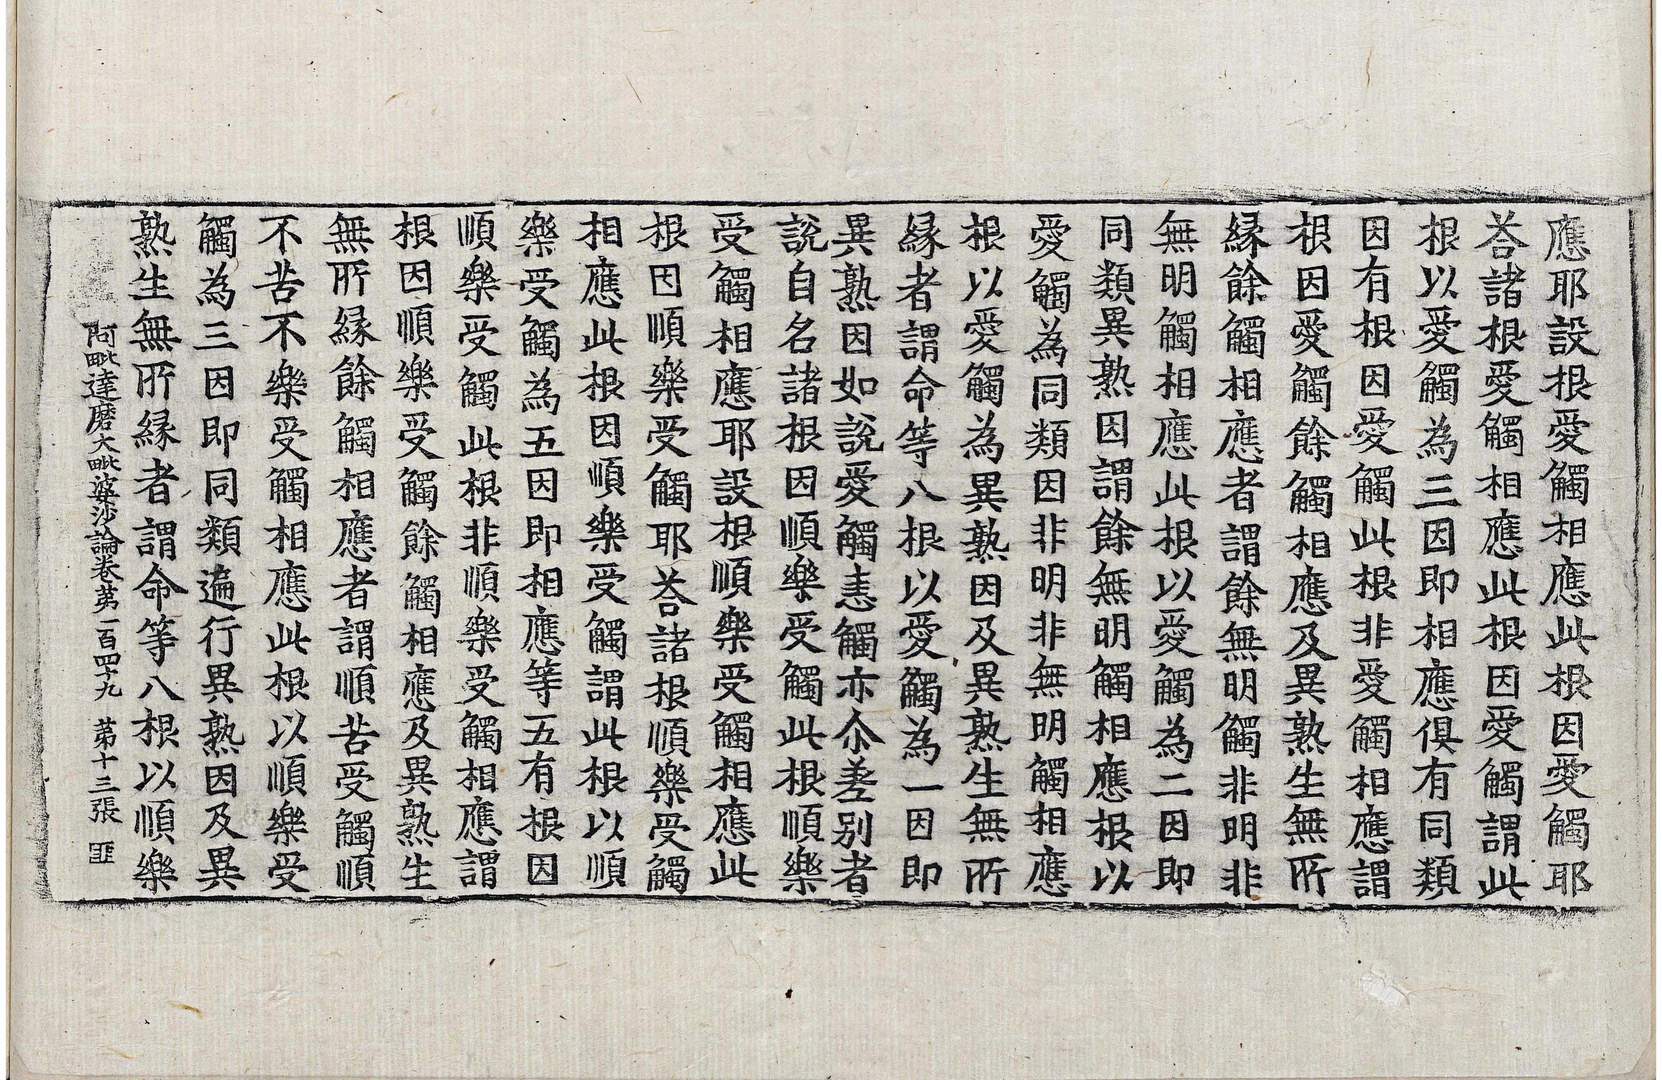 應耶設根愛觸相應此根因愛觸耶
荅諸根愛觸相應此根因愛觸謂此
根以愛觸為三因即相應俱有同類
因有根因愛觸此根非愛觸相應謂
根因愛觸餘觸相應及異熟生無所
縁餘觸相應者謂餘無明觸非明非
無明觸相應此根以愛觸為二因即
同類異熟因謂餘無明觸相應根以
愛觸為同類因非明非無明觸相應
根以愛觸為異熟因及異熟生無所
縁者謂命等八根以愛觸為一因即
異熟因如說愛觸恚觸亦尒差别者
說自名諸根因順樂受觸此根順樂
受觸相應耶設根順樂受觸相應此
根因順樂受觸耶荅諸根順樂受觸
相應此根因順樂受觸謂此根以順
樂受觸為五因即相應等五有根因
順樂受觸此根非順樂受觸相應謂
根因順樂受觸餘觸相應及異熟生
無所縁餘觸相應者謂順苦受觸順
不苦不樂受觸相應此根以順樂受
觸為三因即同類遍行異熟因及異
熟生無所縁者謂命等八根以順樂
阿毗達磨大毗婆沙論卷苐一百四十九　苐十三張　匪